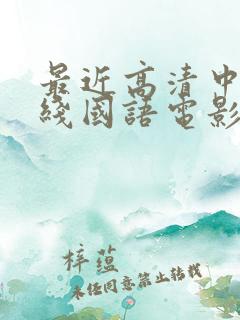 最近高清中
綫國語電影
梓蕴
未经同意禁止转载